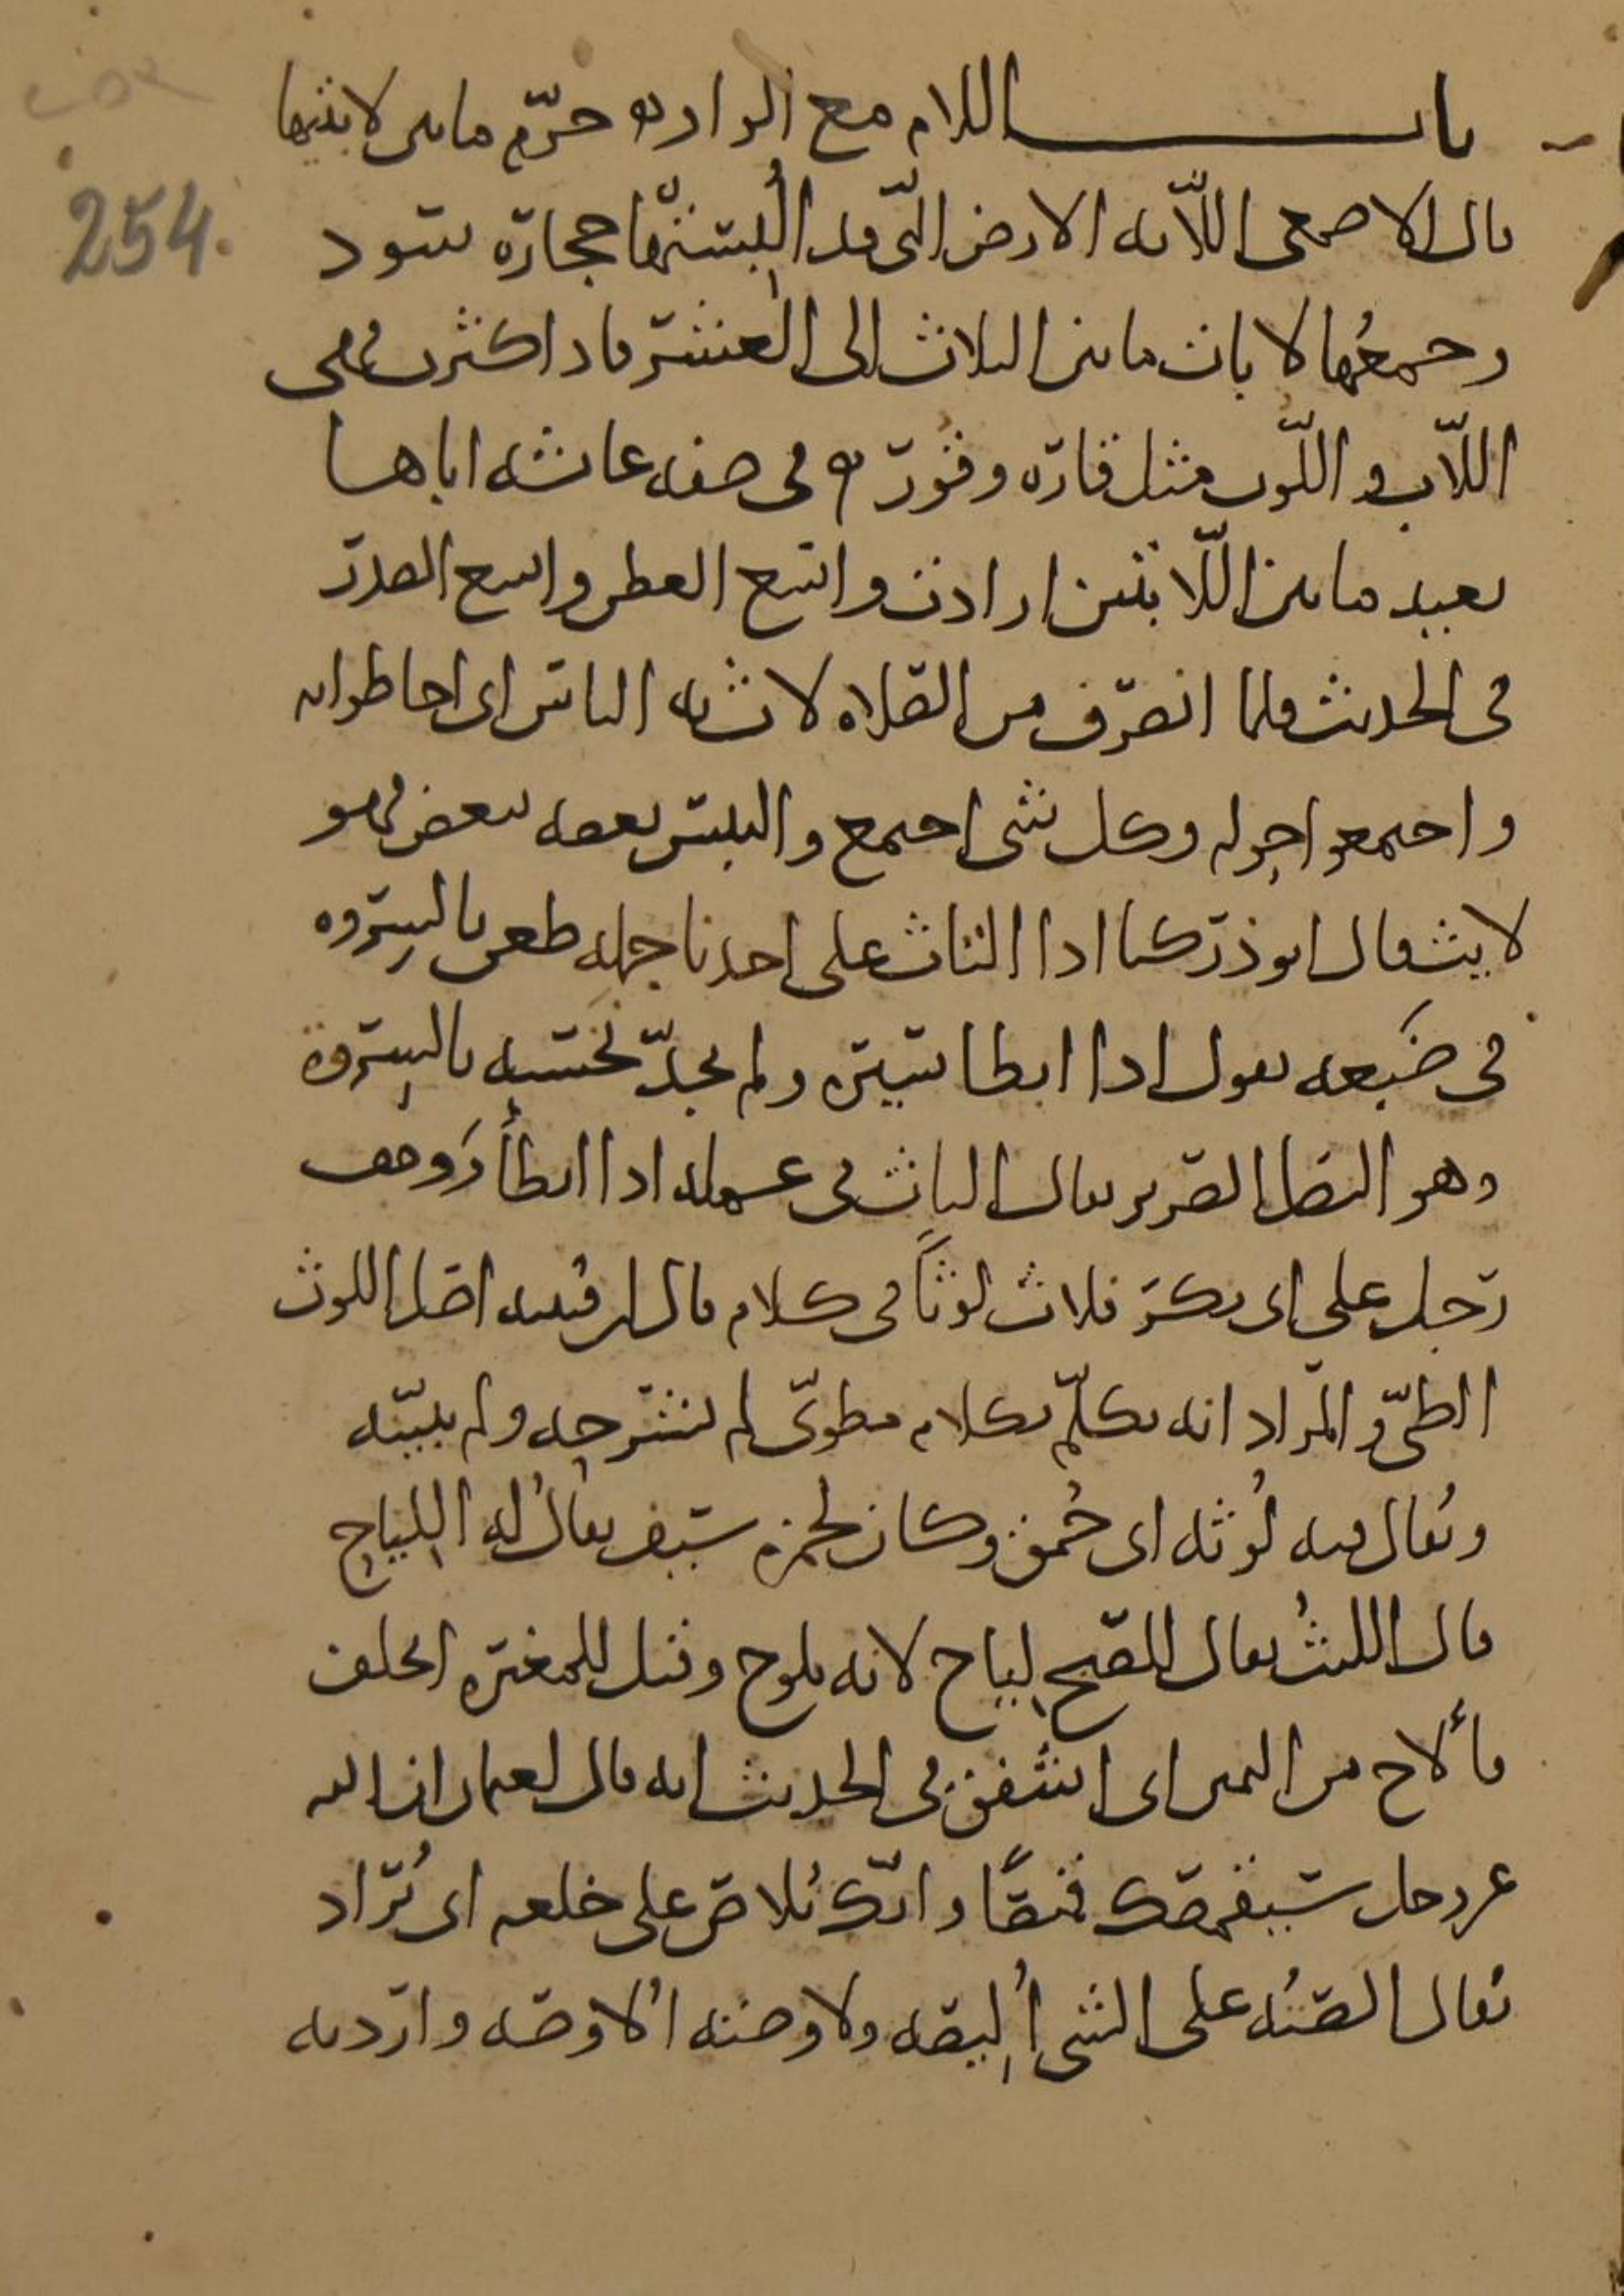 باب اللام مع الواو حرّم ما بين لابتيها
254.
قال الاصمعي اللّابه الارض الّتي قد اُلبِسَتْها حجارة سود
وجمعُها لابات ما بين الثلاث الى العشر فاذا كثرت فهي
اللّاب و اللّوب مثل قارة وقور في صفه عائشه اباها
بعيد ما بين اللّابتين ارادت واسع العطن واسع الصدر
في الحديث فلما انصرف من الصلاه لاث به الناس اي احاطوا به
و اجتمعوا حوله وكل شي اجتمع والتبس بعضه ببعض فهو
لايث قال ابو ذر كنا اذا التاث على احدنا جمله طعن بالسِروه
في ضَبعه يقول اذا ابطا سيره ولم يجدّ نَخَسَه بالسِروة
وهو النصل القصير يقال التاث في عمله اذا ابطأ ووقف
رجل على ابي بكر فلاث لوثاً في كلام قال ابن قتيبه اصل اللوث
الطيّ و المراد انه تكلّم بكلام مطويّ لم يشرحه ولم يبيّنه
ويُقال فيه لُوثه اي حُمق وكان لحمزه سيف يقالُ له اللِياح
قال الليثُ يقال للصبح لِياح لانه يلوح وقيل للمغيره اتحلف
فألاح من اليمين اي اشفق في الحديث انه قال لعثمان ان الله
عز وجل سيقمصك قميصًا وانّك تُلاص على خلعه اي تُراد
يُقال الصتُه على الشي اُلِيصه ولاوصته اُلاوصه واردته